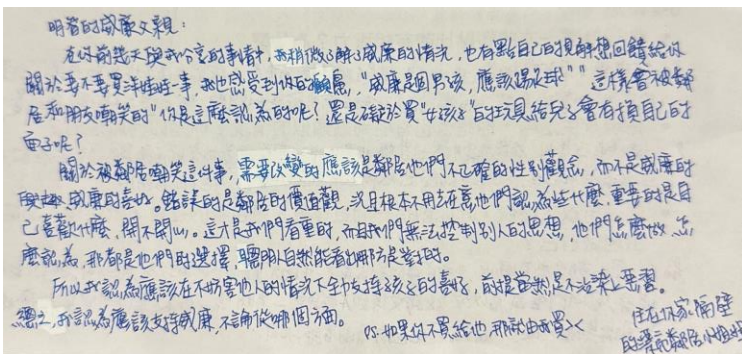 明智的威廉父親：
在你前幾天與我分享的事情中，我稍微了解了威廉的情況，也有點自己的見解想回饋給你
關於要不要買洋娃娃一事，我也感受到你的顧慮，"威廉是個男孩，應該踢足球" "這樣會被鄰
居和朋友嘲笑的"你是這麼認為的呢？還是礙於買"女孩子"的玩具給兒子會有損自己的
面子呢？
關於被鄰居嘲笑這件事，需要改變的應該是鄰居他們不正確的性別觀念，而不是威廉的
威廉的喜好。錯誤的是鄰居的價值觀，況且根本不用去在意他們認為些什麼，重要的是自
己喜歡什麼，開不開心。這才是我們看重的，而且我們無法控制別人的思想，他們怎麼做 怎
麼認為，那都是他們的選擇，聰明人自然能看出哪方是對的。
所以我認為應該在不妨害他人的情況下全力支持孩子的喜好，前提當然是不沾染上惡習。
總之，我認為應該支持威廉，不論從哪個方面。
住在你家隔壁
ps.如果你不買給他 那就由我買><
的漂亮鄰居小姐姐